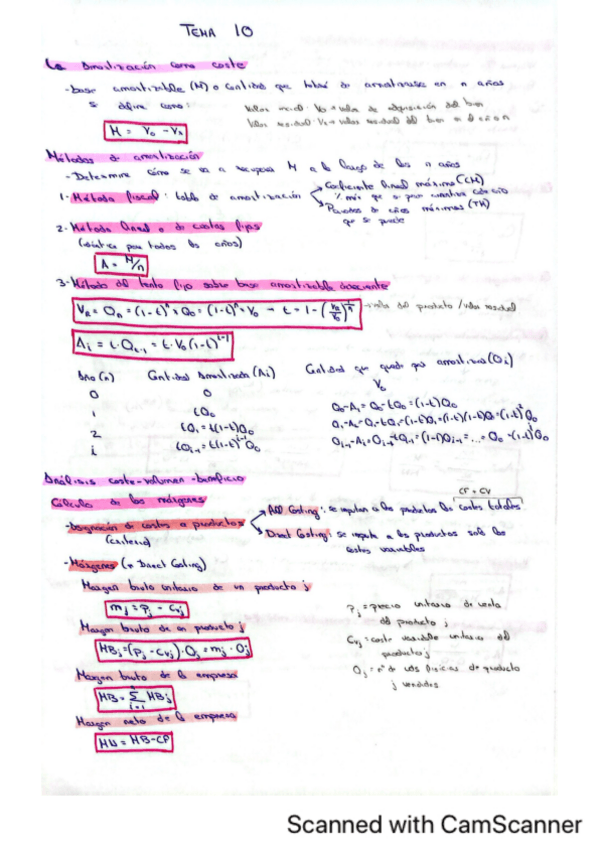 TEMA 10
La amortización como coste
- base amortizable (M) o cantidad que habrá de amortizarse en n años
se define como:
Valor inicial: V₀ → valor de adquisición del bien
Valor residual: Vn → valor residual del bien en el año n
M = V₀ - Vn
Métodos de amortización
- Determina cómo se va a recuperar M a lo largo de los n años
1- Método fiscal: tabla de amortización
Coeficiente lineal máximo (CM)
% máx que se puede amortizar cada año
Periodos de años máximos (TM)
que se puede
2- Método lineal o de cuotas fijas
(idéntica para todos los años)
A = M/n
3- Método del tanto fijo sobre base amortizable decreciente
Vn = Qn = (1-t)ⁿ · Q₀ = (1-t)ⁿ · V₀ → t = 1 - (Vn/V₀)^(1/n)
→ valor del producto / valor residual
Ai = t · Qi-1 = t · V₀ (1-t)^(i-1)
Año (n) Cantidad amortizada (Ai) Cantidad que queda por amortizar (Qi)
0 0 V₀
1 tQ₀ Q₀-A₁ = Q₀-tQ₀ = (1-t)Q₀
2 tQ₁ = t(1-t)Q₀ Q₁-A₂ = Q₁-tQ₁ = (1-t)Q₁ = (1-t)(1-t)Q₀ = (1-t)²Q₀
i tQi-1 = t(1-t)^(i-1)Q₀ Qi-1-Ai = Qi-1-tQi-1 = (1-t)Qi-1 = ... = (1-t)^i Q₀
Análisis coste-volumen-beneficio
Cálculo de los márgenes
CF + CV
- Asignación de costes a productos
(criterio)
Full Costing: se imputan a los productos los costes totales
Direct Costing: se imputa a los productos solo los
costes variables
- Márgenes (→ Direct Costing)
Margen bruto unitario de un producto j
mj = Pj - Cvj
Margen bruto de un producto j
MBj = (Pj - Cvj) · Qj = mj · Qj
Margen bruto de la empresa
MB = Σ MBj
Margen neto de la empresa
MN = MB - CF
Pj = precio unitario de venta
del producto j
Cvj = coste variable unitario del
producto j
Qj = nº de uds físicas de producto
j vendidas
Scanned with CamScanner